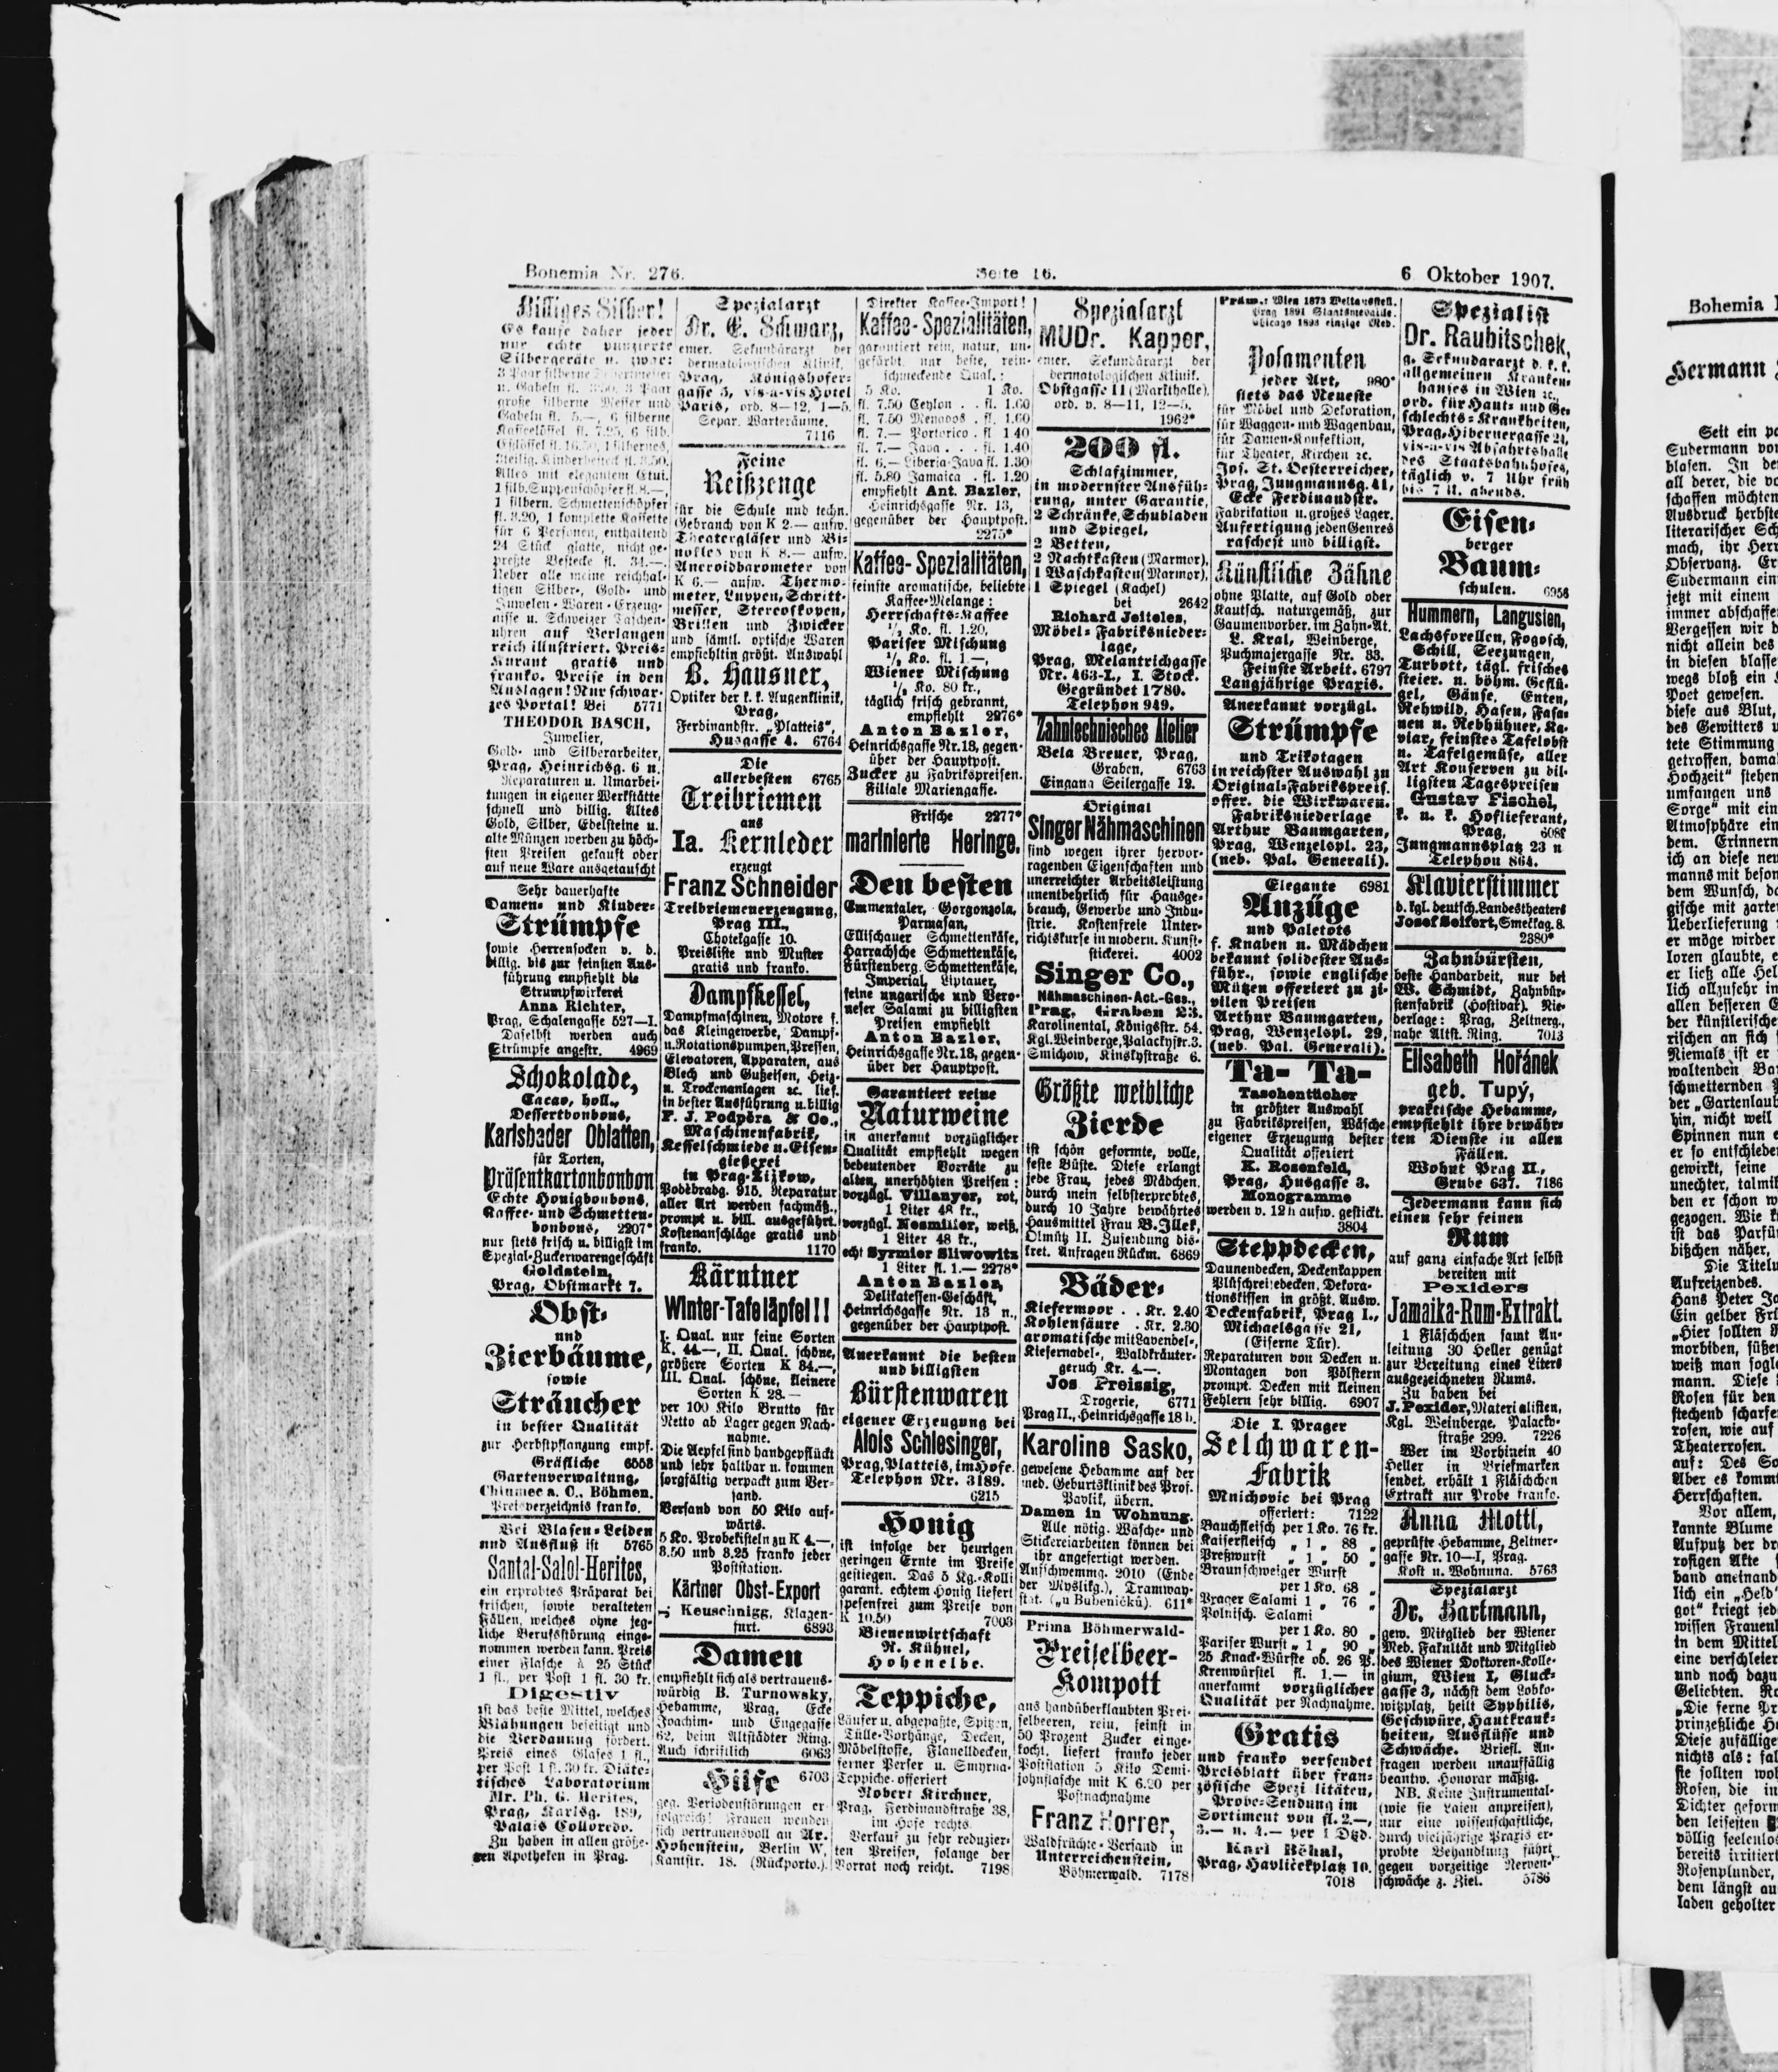 Bohemia Nr. 276.
Seite 16.
6 Oktober 1907.
Billiges Silber!
Es kaufe daher jeder
nur echte punzierte
Silbergeräte u. zwar:
3 Paar silberne Dessertmesser
u. Gabeln fl. 3.50, 3 Paar
große silberne Messer und
Gabeln fl. 5.—, 6 silberne
Kaffeelöffel fl. 7.25, 6 silb.
Eßlöffel fl. 16.50, 1 silbernes,
3teilig. Kinderbesteck fl. 3.50.
Alles mit elegantem Etui.
1 silb. Suppenschöpfer fl. 8.—,
1 silbern. Schmettenschöpfer
fl. 3.20, 1 komplette Kassette
für 6 Personen, enthaltend
24 Stück glatte, nicht ge-
preßte Bestecke fl. 34.—.
Ueber alle meine reichhal-
tigen Silber-, Gold- und
Juwelen-Waren-Erzeug-
nisse u. Schweizer Taschen-
uhren auf Verlangen
reich illustriert. Preis-
Kurant gratis und
franko. Preise in den
Auslagen! Nur schwar-
zes Portal! Bei 5771
THEODOR BASCH,
Juwelier,
Gold- und Silberarbeiter,
Prag, Heinrichsg. 6 n.
Reparaturen u. Umarbei-
tungen in eigener Werkstätte
schnell und billig. Altes
Gold, Silber, Edelsteine u.
alte Münzen werden zu höch-
sten Preisen gekauft oder
auf neue Ware ausgetauscht
Sehr dauerhafte
Damen- und Kinder-
Strümpfe
sowie Herrensocken v. d.
billig. bis zur feinsten Aus-
führung empfiehlt die
Strumpfwirkerei
Anna Richter,
Prag, Schalengasse 527—I.
Daselbst werden auch
Strümpfe angestr. 4969
Schokolade,
Cacao, holl.,
Dessertbonbons,
Karlsbader Oblatten,
für Torten,
Präsentkartonbonbon
Echte Honigbonbons,
Kaffee- und Schmetten-
bonbons, 2207*
nur stets frisch u. billigst im
Spezial-Zuckerwarengeschäft
Goldstein,
Prag, Obstmarkt 7.
Obst-
und
Zierbäume,
sowie
Sträucher
in bester Qualität
zur Herbstpflanzung empf.
Gräfliche 6558
Gartenverwaltung,
Chlumec a. C., Böhmen.
Preisverzeichnis franko.
Bei Blasen-Leiden
und Ausfluß ist 5765
Santal-Salol-Herites,
ein erprobtes Präparat bei
frischen, sowie veralteten
Fällen, welches ohne jeg-
liche Berufsstörung einge-
nommen werden kann. Preis
einer Flasche à 25 Stück
1 fl., per Post 1 fl. 30 kr.
Digestiv
ist das beste Mittel, welches
Blähungen beseitigt und
die Verdauung fördert.
Preis eines Glases 1 fl.,
per Post 1 fl. 30 kr. Diäte-
tisches Laboratorium
Mr. Ph. G. Herites,
Prag, Karlsg. 189,
Palais Colloredo.
Zu haben in allen größe-
ren Apotheken in Prag.
Spezialarzt
Dr. E. Schwarz,
emer. Sekundärarzt der
dermatologischen Klinik,
Prag, Königshofer-
gasse 5, vis-a-vis Hotel
Paris, ord. 8—12, 1—5.
Separ. Warteräume.
7116
Feine
Reißzeuge
für die Schule und techn.
Gebrauch von K 2.— aufw.
Theatergläser und Bi-
nokles von K 8.— aufw.
Aneroidbarometer von
K 6.— aufw. Thermo-
meter, Luppen, Schritt-
messer, Stereoskopen,
Brillen und Zwicker
und sämtl. optische Waren
empfiehlt in größt. Auswahl
B. Hausner,
Optiker der k. k. Augenklinik,
Prag,
Ferdinandstr. „Platteis“,
Husgasse 4. 6764
Die
allerbesten 6765
Treibriemen
aus
Ia. Kernleder
erzeugt
Franz Schneider
Treibriemenerzeugung,
Prag III.,
Chotekgasse 10.
Preisliste und Muster
gratis und franko.
Dampfkessel,
Dampfmaschinen, Motore f.
das Kleingewerbe, Dampf-
u. Rotationspumpen, Pressen,
Elevatoren, Apparaten, aus
Blech und Gußeisen, Heiz-
u. Trockenanlagen ec. lief.
in bester Ausführung u. billig
F. J. Podpěra & Co.,
Maschinenfabrik,
Kesselschmiede u. Eisen-
gießerei
in Prag-Žižkow,
Poděbradg. 915. Reparatur
aller Art werden fachmäß.,
prompt u. bill. ausgeführt.
Kostenanschläge gratis und
franko. 1170
Kärntner
Winter-Tafeläpfel!!
I. Qual. nur feine Sorten
K. 44—, II. Qual. schöne,
größere Sorten K 34.—,
III. Qual. schöne, kleinere
Sorten K 28.—
per 100 Kilo Brutto für
Netto ab Lager gegen Nach-
nahme.
Die Aepfel sind handgepflückt
und sehr haltbar u. kommen
sorgfältig verpackt zum Ver-
sand.
Versand von 50 Kilo auf-
wärts.
5 Ko. Probekisteln zu K 4.—,
3.50 und 3.25 franko jeder
Poststation.
Kärtner Obst-Export
Keuschnigg, Klagen-
furt. 6893
Damen
empfiehlt sich als vertrauens-
würdig B. Turnowsky,
Hebamme, Prag, Ecke
Joachim- und Engegasse
62, beim Altstädter Ring.
Auch schriftlich 6063
Hilfe 6703
geg. Periodenstörungen er-
folgreich! Frauen wenden
sich vertrauensvoll an Ar.
Hohenstein, Berlin W,
Kantstr. 18. (Rückporto.)
Direkter Kaffee-Import!
Kaffee-Spezialitäten,
garantiert rein, natur, un-
gefärbt, nur beste, rein-
schmeckende Qual.:
5 Ko. 1 Ko.
fl. 7.50 Ceylon . . fl. 1.60
fl. 7.50 Menados . fl. 1.60
fl. 7.— Portorico . fl 1.40
fl. 7.— Java . . . fl. 1.40
fl. 6.— Liberia-Java fl. 1.30
fl. 5.80 Jamaica . fl. 1.20
empfiehlt Ant. Bazler,
Heinrichsgasse Nr. 13,
gegenüber der Hauptpost.
2275*
Kaffee-Spezialitäten,
feinste aromatische, beliebte
Kaffee-Melange:
Herrschafts-Kaffee
½ Ko. fl. 1.20,
Pariser Mischung
½ Ko. fl. 1.—,
Wiener Mischung
½ Ko. 80 kr.,
täglich frisch gebrannt,
empfiehlt 2276*
Anton Bazler,
Heinrichsgasse Nr. 13, gegen-
über der Hauptpost.
Zucker zu Fabrikspreisen.
Filiale Mariengasse.
Frische 2277*
marinierte Heringe.
Den besten
Emmentaler, Gorgonzola,
Parmasan,
Ellischauer Schmettenkäse,
Harrachsche Schmettenkäse,
Fürstenberg. Schmettenkäse,
Imperial, Liptauer,
feine ungarische und Vero-
neser Salami zu billigsten
Preisen empfiehlt
Anton Bazler,
Heinrichsgasse Nr. 13, gegen-
über der Hauptpost.
Garantiert reine
Naturweine
in anerkannt vorzüglicher
Qualität empfiehlt wegen
bedeutender Vorräte zu
alten, unerhöhten Preisen:
vorzügl. Villanyer, rot,
1 Liter 48 kr.,
vorzügl. Nesmiller, weiß,
1 Liter 48 kr.,
echt Syrmier Sliwowitz
1 Liter fl. 1.— 2278*
Anton Bazler,
Delikatessen-Geschäft,
Heinrichsgasse Nr. 13 n.,
gegenüber der Hauptpost.
Anerkannt die besten
und billigsten
Bürstenwaren
eigener Erzeugung bei
Alois Schlesinger,
Prag, Platteis, im Hofe.
Telephon Nr. 3189.
6215
Honig
ist infolge der heurigen
geringen Ernte im Preise
gestiegen. Das 5 Kg.-Kolli
garant. echtem Honig liefert
spesenfrei zum Preise von
K 10.50 7003
Bienenwirtschaft
N. Kühnel,
Hohenelbe.
Teppiche,
Läufer u. abgepaßte, Spitzen,
Tülle-Vorhänge, Decken,
Möbelstoffe, Flanelldecken,
ferner Perser u. Smyrna-
Teppiche offeriert
Robert Kirchner,
Prag, Ferdinandstraße 38,
im Hofe rechts.
Verkauf zu sehr reduzier-
ten Preisen, solange der
Vorrat noch reicht. 7198
Spezialarzt
MUDr. Kapper,
emer. Sekundärarzt der
dermatologischen Klinik.
Obstgasse 11 (Markthalle),
ord. v. 8—11, 12—5.
1962*
200 fl.
Schlafzimmer,
in modernster Ausfüh-
rung, unter Garantie,
2 Schränke, Schubladen
und Spiegel,
2 Betten,
2 Nachtkasten (Marmor),
1 Waschkasten (Marmor),
1 Spiegel (Kachel)
bei 2642
Richard Jeiteles,
Möbel-Fabriksnieder-
lage,
Prag, Melantrichgasse
Nr. 463-I., I. Stock.
Gegründet 1780.
Telephon 949.
Zahntechnisches Atelier
Bela Breuer, Prag,
Graben, 6763
Eingang Seilergasse 12.
Original
Singer Nähmaschinen
sind wegen ihrer hervor-
ragenden Eigenschaften und
unerreichter Arbeitsleistung
unentbehrlich für Hausge-
brauch, Gewerbe und Indu-
strie. Kostenfreie Unter-
richtskurse in modern. Kunst-
stickerei. 4002
Singer Co.,
Nähmaschinen-Act.-Ges.,
Prag, Graben 23.
Karolinental, Königsstr. 54.
Kgl. Weinberge, Palackystr. 3.
Smichow, Kinskystraße 6.
Größte weibliche
Zierde
ist schön geformte, volle,
feste Büste. Diese erlangt
jede Frau, jedes Mädchen
durch mein selbsterprobtes,
durch 10 Jahre bewährtes
Hausmittel Frau B. Illek,
Olmütz II. Zusendung dis-
kret. Anfragen Rückm. 6869
Bäder-
Kiefermoor . . Kr. 2.40
Kohlensäure . Kr. 2.30
aromatische mit Lavendel-,
Kiefernadel-, Waldkräuter-
geruch Kr. 4.—.
Jos Preissig,
Drogerie, 6771
Prag II., Heinrichsgasse 18 b.
Karoline Sasko,
gewesene Hebamme auf der
med. Geburtsklinik des Prof.
Pavlik, übern.
Damen in Wohnung.
Alle nötig. Wäsche- und
Stickereiarbeiten können bei
ihr angefertigt werden.
Aufschwemmg. 2010 (Ende
der Myslikg.), Tramway-
stat. („u Bubeničků). 611*
Prima Böhmerwald-
Preiselbeer-
Kompott
aus handüberklaubten Prei-
selbeeren, rein, feinst in
50 Prozent Zucker einge-
kocht, liefert franko jeder
Poststation 5 Kilo Demi-
johnflasche mit K 6.20 per
Postnachnahme
Franz Horrer,
Waldfrüchte-Versand in
Unterreichenstein,
Böhmerwald. 7178
Präm.: Wien 1873 Weltausstell.
Prag 1891 Staatsmedaille.
Chicago 1893 einzige Med.
Posamenten
jeder Art, 980*
stets das Neueste
für Möbel und Dekoration,
für Waggon- und Wagenbau,
für Damen-Konfektion,
für Theater, Kirchen ec.
Jos. St. Oesterreicher,
Prag, Jungmannsg. 41,
Ecke Ferdinandstr.
Fabrikation u. großes Lager.
Anfertigung jeden Genres
raschest und billigst.
Künstliche Zähne
ohne Platte, auf Gold oder
Kautsch. naturgemäß, zur
Gaumenvorber. im Zahn-At.
L. Kral, Weinberge,
Puchmajergasse Nr. 33.
Feinste Arbeit. 6797
Langjährige Praxis.
Anerkannt vorzügl.
Strümpfe
und Trikotagen
in reichster Auswahl zu
Original-Fabrikspreis.
offer. die Wirkwaren-
Fabriksniederlage
Arthur Baumgarten,
Prag, Wenzelspl. 29,
(neb. Pal. Generali).
Elegante 6981
Anzüge
und Paletots
f. Knaben u. Mädchen
bekannt solidester Aus-
führ., sowie englische
Mützen offeriert zu zi-
vilen Preisen
Arthur Baumgarten,
Prag, Wenzelspl. 29,
(neb. Pal. Generali).
Ta- Ta-
Taschentücher
in größter Auswahl
zu Fabrikspreisen, Wäsche
eigener Erzeugung bester
Qualität offeriert
K. Rosenfeld,
Prag, Husgasse 3.
Monogramme
werden v. 12 h aufw. gestickt.
3804
Steppdecken,
Daunendecken, Deckenkappen
Plüschreisedecken, Dekora-
tionskissen in größt. Ausw.
Deckenfabrik, Prag I.,
Michaelsgasse 21,
(Eiserne Tür).
Reparaturen von Decken u.
Montagen von Pölstern
prompt. Decken mit kleinen
Fehlern sehr billig. 6907
Die I. Prager
Selchwaren-
Fabrik
Mnichovic bei Prag
offeriert: 7122
Bauchfleisch per 1 Ko. 76 kr.
Kaiserfleisch „ 1 „ 88 „
Preßwurst „ 1 „ 50 „
Braunschweiger Wurst
per 1 Ko. 68 „
Prager Salami 1 „ 76 „
Polnisch. Salami
per 1 Ko. 80 „
Pariser Wurst „ 1 „ 90 „
25 Knack-Würste ob. 26 P.
Krenwürstel fl. 1.— in
anerkannt vorzüglicher
Qualität per Nachnahme.
Gratis
und franko versendet
Preisblatt über fran-
zösische Spezialitäten,
Probe-Sendung im
Sortiment von fl. 2.—,
3.— u. 4.— per 1 Dtzd.
Karl Böhal,
Prag, Havlicekplatz 10.
7018
Spezialist
Dr. Raubitschek,
g. Sekundararzt d. k. k.
allgemeinen Kranken-
hauses in Wien ec.,
ord. für Haut- und Ge-
schlechts-Krankheiten,
Prag, Hibernergasse 21,
vis-a-vis Abfahrtshalle
des Staatsbahnhofes,
täglich v. 7 Uhr früh
bis 7 U. abends.
Eisen-
berger
Baum-
schulen. 6956
Hummern, Langusten,
Lachsforellen, Fogosch,
Schill, Seezungen,
Turbott, tägl. frisches
steier. u. böhm. Geflü-
gel, Gänse, Enten,
Rehwild, Hasen, Fasa-
nen u. Rebhühner, Ka-
viar, feinstes Tafelobst
u. Tafelgemüse, aller
Art Konserven zu bil-
ligsten Tagespreisen
Gustav Fischel,
k. u. k. Hoflieferant,
Prag,
Jungmannsplatz 23 n
Telephon 864.
Klavierstimmer
d. kgl. deutsch. Landestheaters
Josef Seifert, Smečkag. 8.
2380*
Zahnbürsten,
beste Handarbeit, nur bei
W. Schmidt, Zahnbür-
stenfabrik (Hostivař). Nie-
derlage: Prag, Zeltnerg.,
nahe Altst. Ring. 7013
Elisabeth Hořánek
geb. Tupý,
praktische Hebamme,
empfiehlt ihre bewähr-
ten Dienste in allen
Fällen.
Wohnt Prag II.,
Grube 637. 7186
Jedermann kann sich
einen sehr feinen
Rum
auf ganz einfache Art selbst
bereiten mit
Pexiders
Jamaika-Rum-Extrakt.
1 Fläschchen samt An-
leitung 30 Heller genügt
zur Bereitung eines Liters
ausgezeichneten Rums.
Zu haben bei
J. Pexider, Materialisten,
Kgl. Weinberge, Palacky-
straße 299. 7226
Wer im Vorhinein 40
Heller in Briefmarken
sendet, erhält 1 Fläschchen
Extrakt zur Probe franko.
Anna Mottl,
geprüfte Hebamme, Zeltner-
gasse Nr. 10—I, Prag.
Kost u. Wohnung. 5763
Spezialarzt
Dr. Hartmann,
gew. Mitglied der Wiener
Med. Fakultät und Mitglied
des Wiener Doktoren-Kolle-
gium, Wien I, Gluck-
gasse 3, nächst dem Lobko-
witzplatz, heilt Syphilis,
Geschwüre, Hautkrank-
heiten, Ausflüsse und
Schwäche. Briefl. An-
fragen werden unauffällig
beantw. Honorar mäßig.
NB. Keine Instrumental-
(wie sie Laien anpreisen),
nur eine wissenschaftliche,
durch vieljährige Praxis er-
probte Behandlung führt
gegen vorzeitige Nerven-
schwäche z. Ziel. 5786
Bohemia
Hermann
Seit ein
Sudermann
blasen. In
all derer, die
schaffen möchten
Ausdruck herbst
literarischer
mach, ihr
Observanz.
Sudermann ein
jetzt mit einem
immer
Vergessen wir
nicht allein des
in diesen
wegs bloß ein
Poet gewesen.
diese aus Blut,
des Gewitters
tete Stimmung
getroffen,
Hochzeit“ stehen
umfangen uns
Sorge“ mit
Atmosphäre
dem.
ich an diese
manns mit
dem Wunsch,
gische mit
Ueberlieferung
er möge
loren glaubte,
er ließ alle
lich allzusehr in
allen besseren
der künstlerische
rischen an sich
Niemals ist er
waltenden
schmetternden
der „Gartenlaub
hin, nicht weil
Spinnen nun
er so
gewirkt, seine
unechter,
den er schon
gezogen. Wie
ist das
bißchen näher,
Die
Aufreizendes.
Hans Peter
Ein gelber
„Hier sollten
morbiden,
weiß man
mann. Diese
Rosen für den
stechend
rosen, wie auf
Theaterrosen.
auf: Des
Aber es
Herrschaften.
Vor allem,
kannte Blume
Aufputz der
rosigen Akte
band
lich ein „Held
got“ kriegt
wissen
in dem
eine
und noch dazu
Geliebten.
„Die ferne
prinzeßliche
Diese zufällige
nichts als:
sie sollten
Rosen, die in
Dichter
den leisesten
völlig
bereits irritiert
Rosenplunder,
dem längst
laden geholter